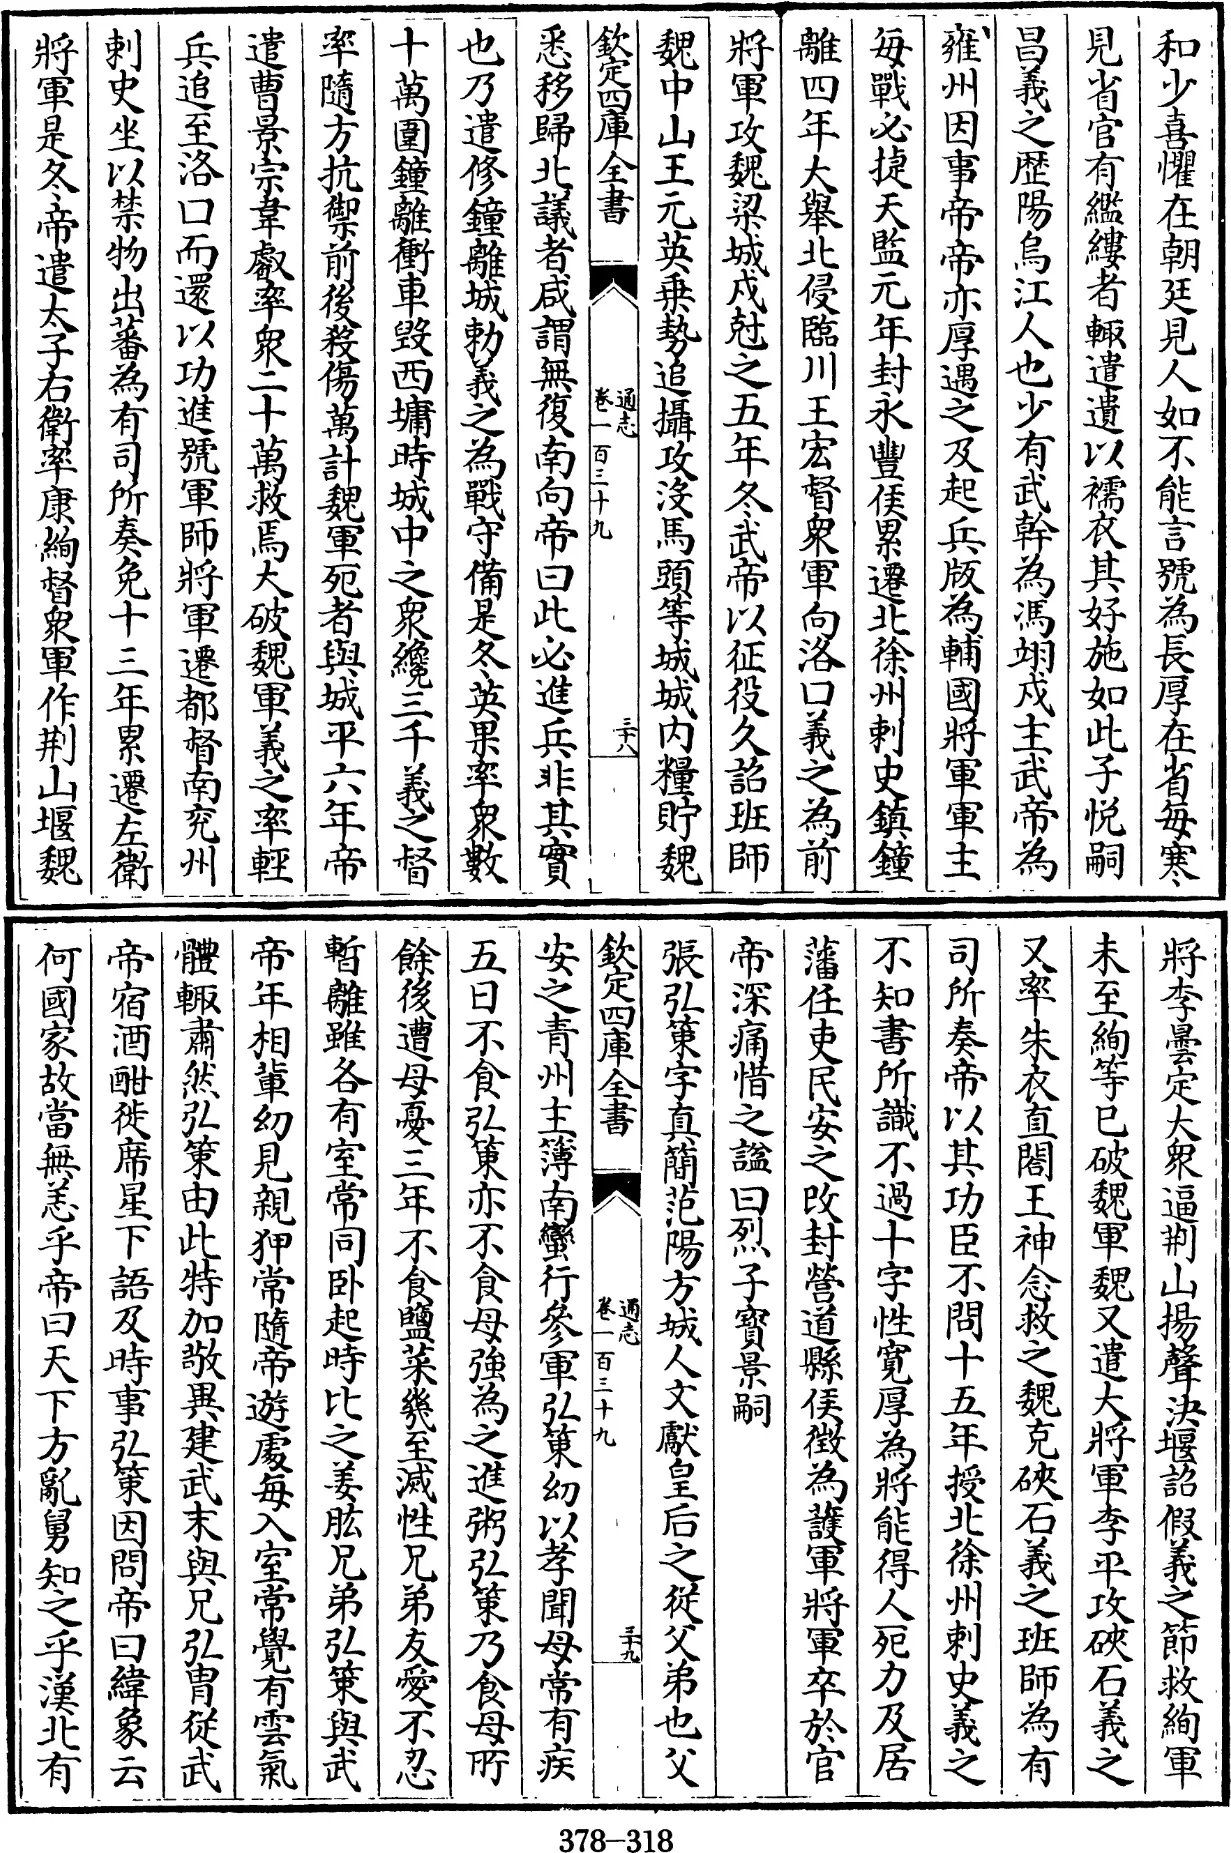 和少喜懼在朝廷見人如不能言號為長厚在省每寒
見省官有繿縷者輙遣遺以襦衣其好施如此子悦嗣
昌義之歴陽烏江人也少有武幹為馮翊戍主武帝為
雍州因事帝帝亦厚遇之及起兵版為輔國將軍軍主
每戰必捷天監元年封永豐侯累遷北徐州刺史鎮鐘
離四年大舉北侵臨川王宏督衆軍向洛口義之為前
將軍攻魏梁城戍尅之五年冬武帝以征役久詔班師
魏中山王元英乗勢追攝攻沒馬頭等城城内糧貯魏
欽定四庫全書
通志
卷一百三十九
三十八
悉移歸北議者咸謂無復南向帝曰此必進兵非其實
也乃遣修鐘離城勅義之為戰守備是冬英果率衆數
十萬圍鐘離衝車毀西墉時城中之衆纔三千義之督
率隨方抗禦前後殺傷萬計魏軍死者與城平六年帝
遣曹景宗韋叡率衆二十萬救焉大破魏軍義之率輕
兵追至洛口而還以功進號軍師將軍遷都督南兖州
刺史坐以禁物出蕃為有司所奏免十三年累遷左衛
將軍是冬帝遣太子右衛率康絢督衆軍作荆山堰魏
將李曇定大衆逼荆山揚聲決堰詔假義之節救絢軍
未至絢等已破魏軍魏又遣大將軍李平攻硤石義之
又率朱衣直閤王神念救之魏克硤石義之班師為有
司所奏帝以其功臣不問十五年授北徐州刺史義之
不知書所識不過十字性寛厚為將能得人死力及居
藩任吏民安之改封營道縣侯徴為護軍將軍卒於官
帝深痛惜之諡曰烈子寳景嗣
張弘策字真簡范陽方城人文獻皇后之從父弟也父
欽定四庫全書
通志
卷一百三十九
三十九
安之青州主簿南蠻行參軍弘策幼以孝聞母常有疾
五日不食弘策亦不食母強為之進粥弘策乃食母所
餘後遭母憂三年不食鹽菜幾至滅性兄弟友愛不忍
暫離雖各有室常同卧起時比之姜肱兄弟弘策與武
帝年相輩幼見親狎常隨帝遊處每入室常覺有雲氣
體輙肅然弘策由此特加敬異建武末與兄弘胄從武
帝宿酒酣徙席星下語及時事弘策因問帝曰緯象云
何國家故當無恙乎帝曰天下方亂舅知之乎漢北有
378-318